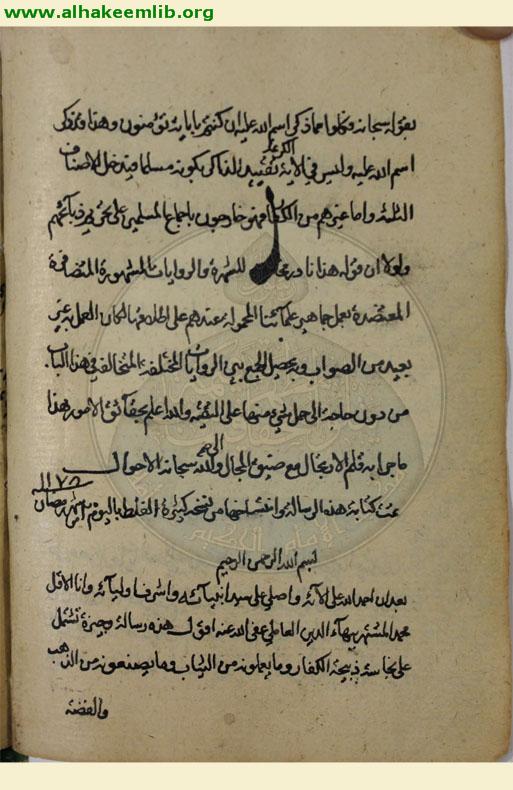 www.alhakeemlib.org
بقوله سبحانه وكلوا مما ذكر اسم الله عليه ان كنتم باياته مؤمنين وهذا مما ذكر
اسم الله عليه وليس في الاية الكريمة تقييد الذاكر بكونه مسلما فيدخل الاصناف
الثلثة واما غيرهم من الكفار فهو خارجون باجماع المسلمين على تحريم ذبائحهم
ولولا ان قوله هذا نادر مخالف للشهرة والروايات المشهورة المتضافرة
المعتضدة بعمل جماهير علمائنا المحمولة عندهم على اطلاقها لكان العمل به غير
بعيد من الصواب وبه يحصل الجمع بين الروايات المختلفة المتخالفة في هذا الباب
من دون حاجة الى حمل شيء منها على التقية والله اعلم بحقائق الامور هذا
ما جرى به قلم الارتجال مع ضيق المجال والى الله سبحانه الاحوال
تمت كتابة هذه الرسالة من نسخة كثيرة الغلط باليوم شهر رمضان
بسم الله الرحمن الرحيم
بعد ان احمد الله على الآئه واصلي على سيد انبيآئه واشرف اوليآئه وانا الاقل
محمد المشتهر ببهآء الدين العاملي عفى الله عنه اقول هذه رسالة وجيزة تشتمل
على نجاسة ذبيحة الكفار وما يعملونه من الثياب وما يصنعونه من الذهب
والفضة